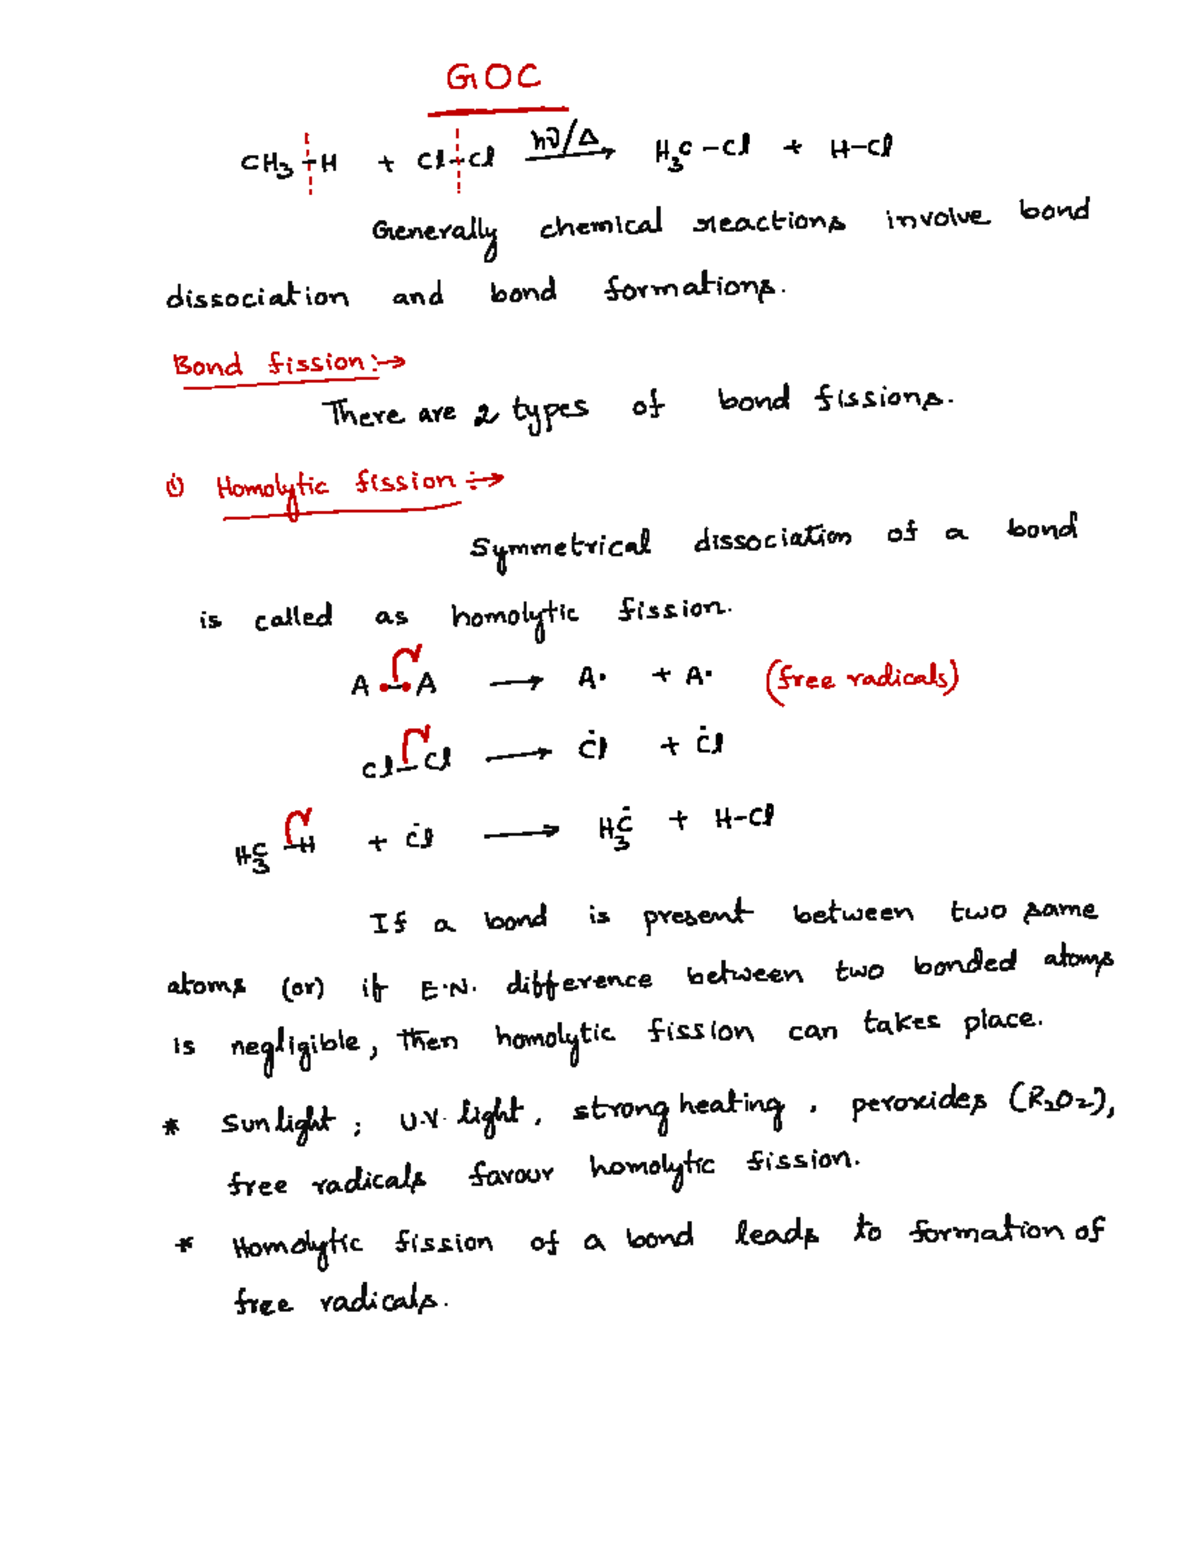 GOC
CH₃-H + Cl-Cl hν/Δ → H₃C-Cl + H-Cl
Generally chemical reactions involve bond
dissociation and bond formations.
Bond fission:→
There are 2 types of bond fissions.
① Homolytic fission:→
Symmetrical dissociation of a bond
is called as homolytic fission.
A-A → A· + A· (free radicals)
Cl-Cl → Ċl + Ċl
H₃C-H + Ċl → H₃Ċ + H-Cl
If a bond is present between two same
atoms (or) if E.N. difference between two bonded atoms
is negligible, then homolytic fission can takes place.
* Sunlight; U.V. light, strong heating, peroxides (R₂O₂),
free radicals favour homolytic fission.
* Homolytic fission of a bond leads to formation of
free radicals.